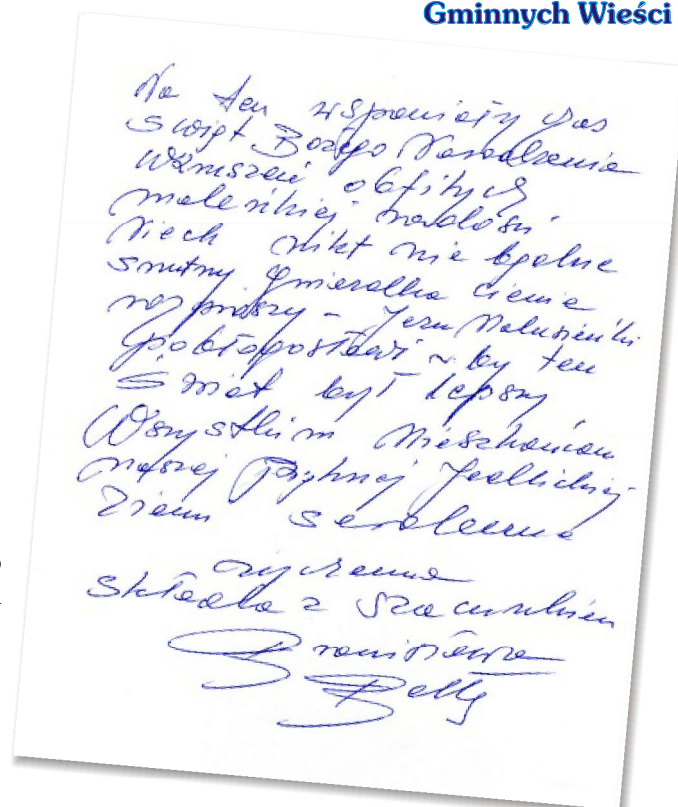 Gminnych Wieści
Na ten wspaniały czas
Świąt Bożego Narodzenia
wzruszeń obfitych
maleńkiej radości
Niech nikt nie będzie
smutny gwiazdka cienie
rozproszy - Jezu Malusieńki
pobłogosławi ~ by ten
Świat był lepszy
Wszystkim Mieszkańcom
naszej Pięknej Jedlickiej
Ziemi serdeczne
życzenia
składa z szacunkiem
Bronisława